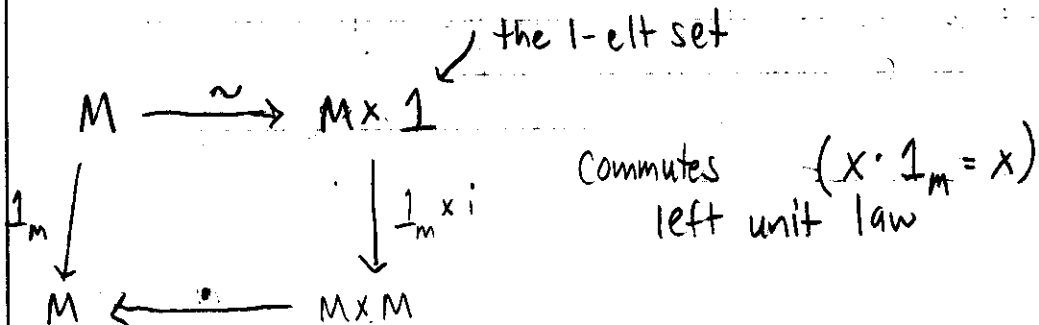 the 1-elt set
M ~ M × 1
1_m 1_m × i Commutes (x · 1_m = x)
left unit law
M · M × M